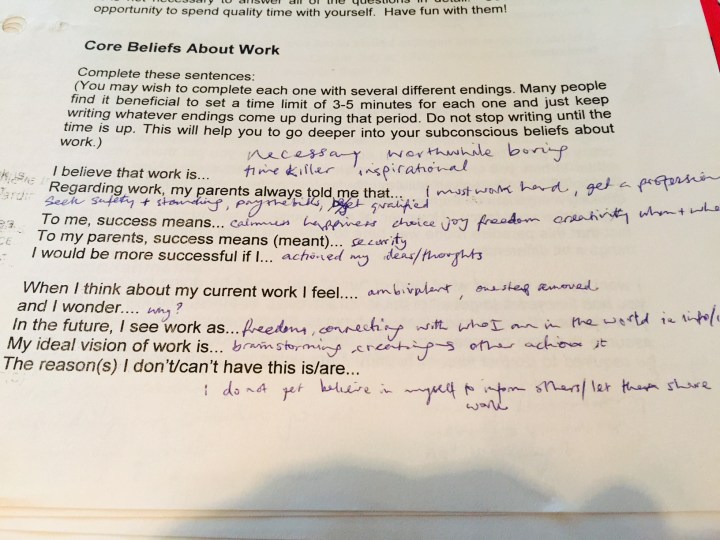 opportunity to spend quality time with yourself. Have fun with them!
Core Beliefs About Work
Complete these sentences:
(You may wish to complete each one with several different endings. Many people
find it beneficial to set a time limit of 3-5 minutes for each one and just keep
writing whatever endings come up during that period. Do not stop writing until the
time is up. This will help you to go deeper into your subconscious beliefs about
work.)
necessary worthwhile boring
I believe that work is... time killer inspirational
Regarding work, my parents always told me that... I must work hard, get a profession
seek safety + standing, pay the bills, get qualified
To me, success means... calmness happiness choice joy freedom creativity when + whe
To my parents, success means (meant)... security
I would be more successful if I... actioned my ideas/thoughts
When I think about my current work I feel.... ambivalent, one step removed
and I wonder.... why?
In the future, I see work as... freedom, connecting with who I am in the world ie info/
My ideal vision of work is... brainstorming, creating others action it
The reason(s) I don't/can't have this is/are...
I do not yet believe in myself to inform others/let them share
work